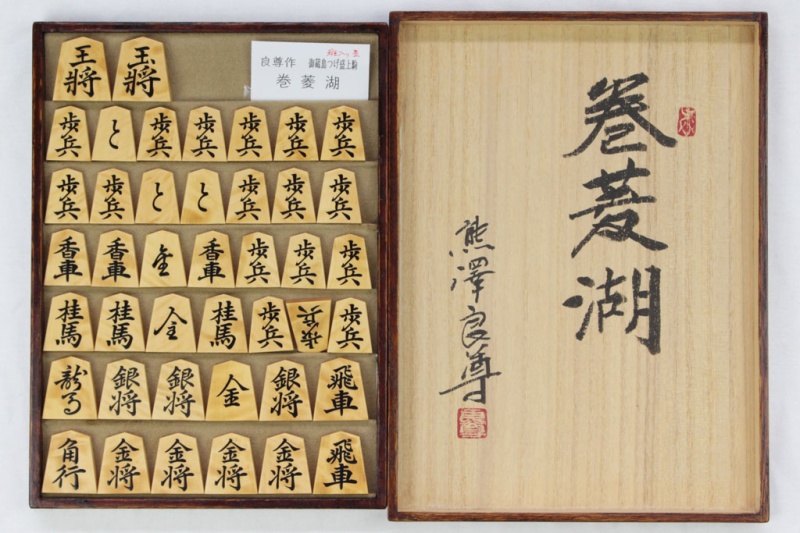 王將 玉將
良尊作 御蔵島つげ盛上駒
巻菱湖
歩兵 と 歩兵 歩兵 歩兵 歩兵 歩兵
歩兵 歩兵 と と 歩兵 歩兵 歩兵
香車 香車 金 香車 歩兵 歩兵 歩兵
桂馬 桂馬 金 桂馬 歩兵 歩兵 歩兵
龍馬 銀将 銀将 金 銀将 飛車
角行 金将 金将 金将 金将 飛車
巻菱湖
熊澤良尊